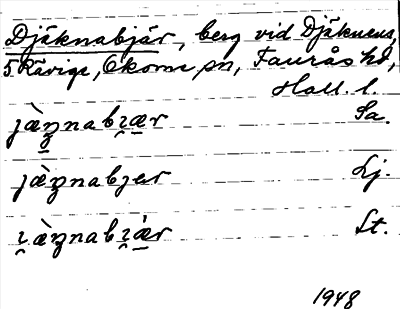 Djäknabjär, berg vid Djäknens,
5 Rävige, Okome sn, Faurås hd,
Hall. l.
jæ̀ŋnabi̯ær Sa.
jæ̀ŋnabjer Lj.
i̯æ̀ŋnabi̯ǽr St.
1948